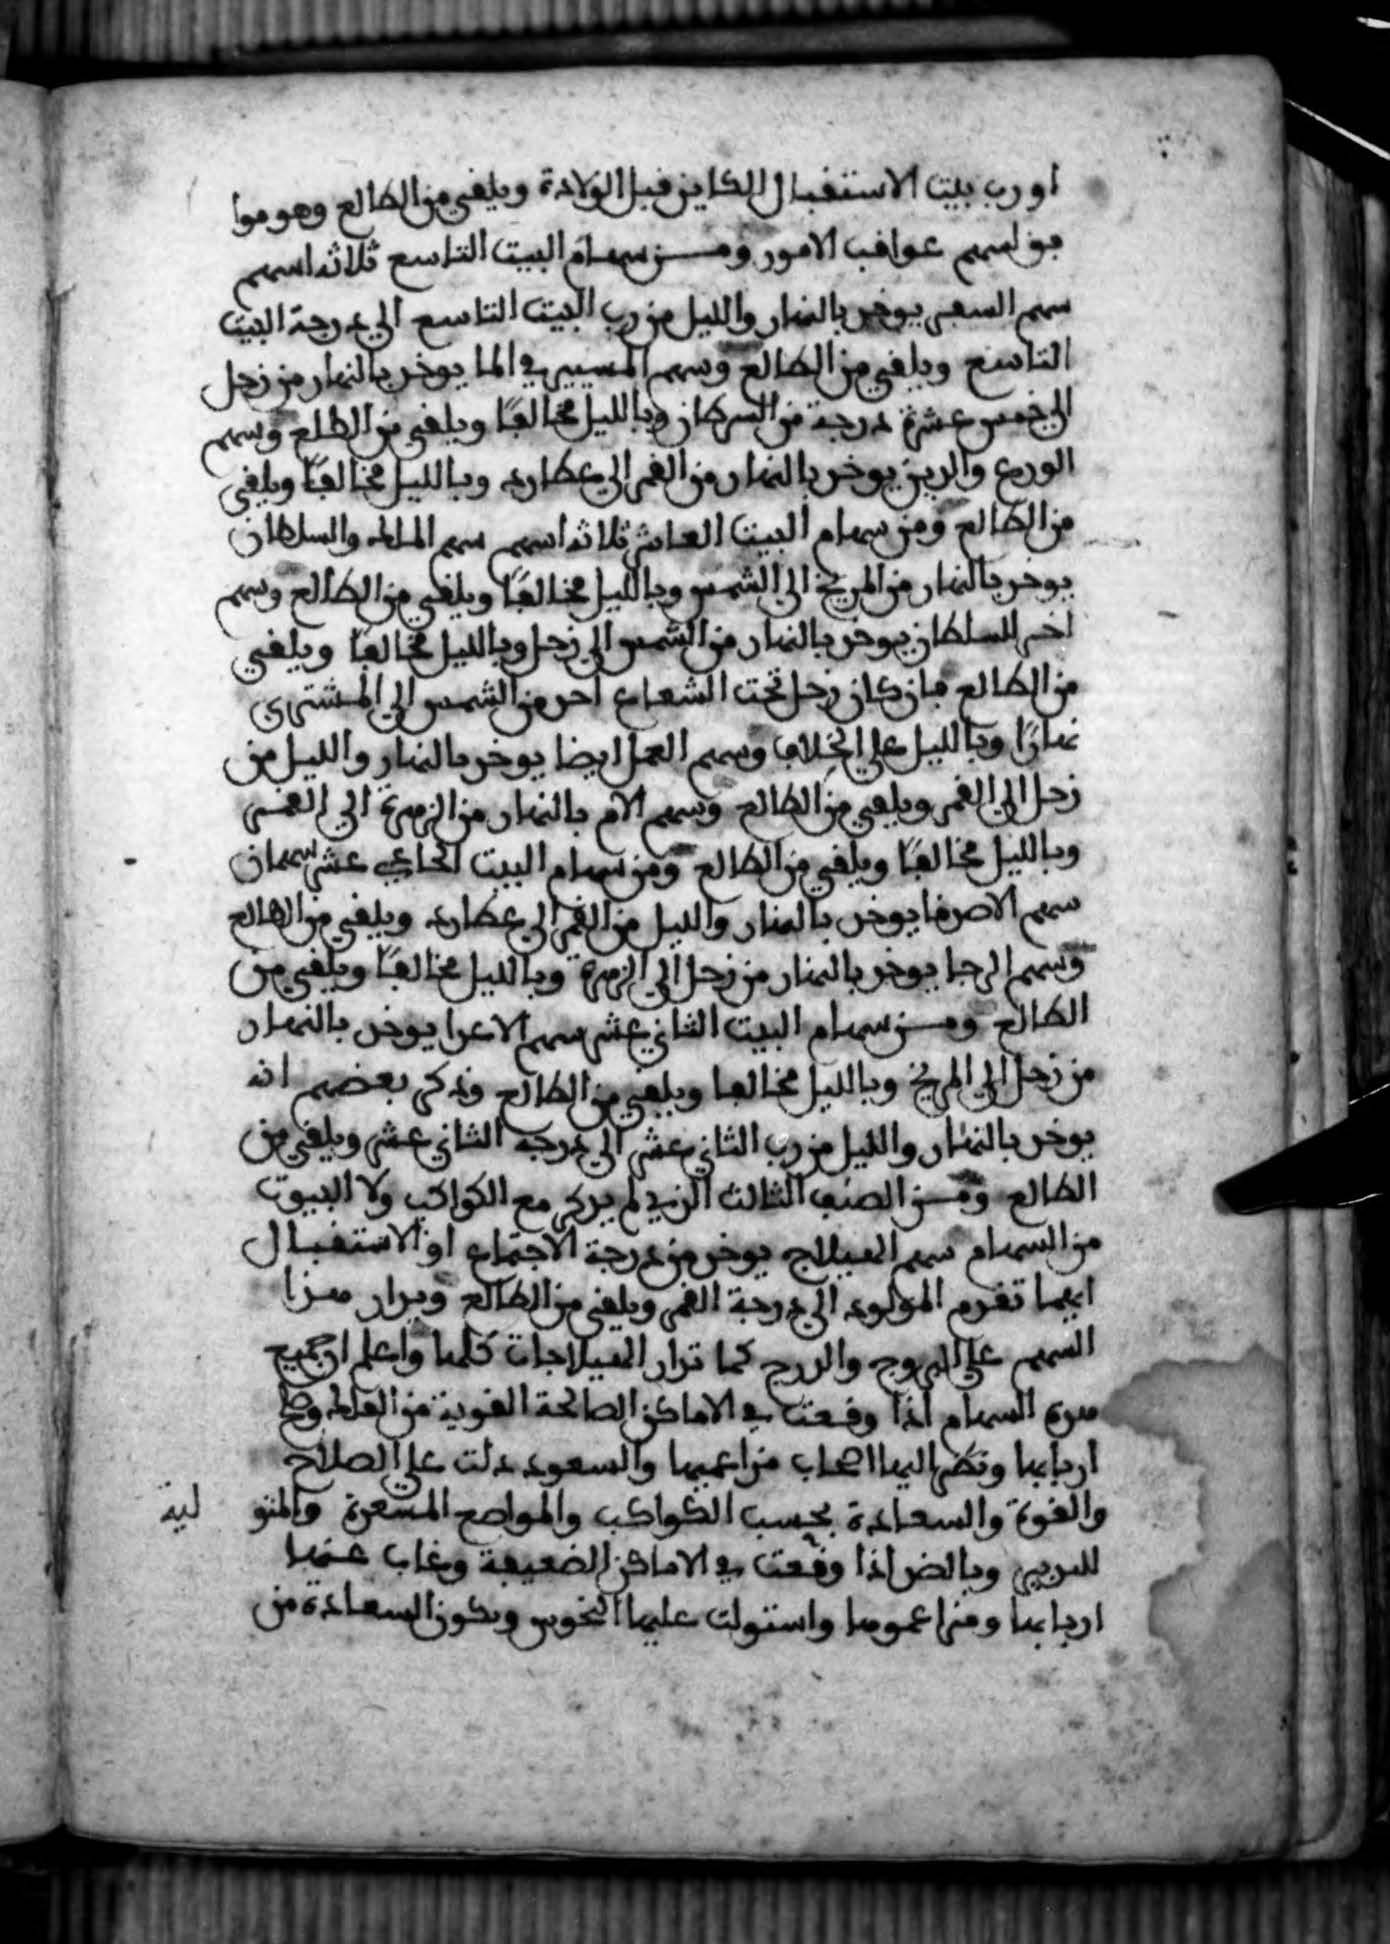 او رب بيت الاستقبال الكاين قبل الولادة ويلقى من الطالع وهو موا
فق لسهم عواقب الامور ومن سهام البيت التاسع ثلاثه اسهم
سهم السفر يوخذ بالنهار والليل من رب البيت التاسع الى درجة البيت
التاسع ويلقى من الطالع وسهم المسير في الما يوخذ بالنهار من زحل
الى خمس عشرة درجة من السرطان وبالليل مخالفًا ويلقى من الطلع وسهم
الورع والدين يوخذ بالنهار من القمر الى عطارد وبالليل مخالفًا ويلقى
من الطالع ومن سهام البيت العاشر ثلاثه اسهم سهم الملك والسلطان
يوخذ بالنهار من المريخ الى الشمس وبالليل مخالفًا ويلقى من الطالع وسهم
اخر للسلطان يوخذ بالنهار من الشمس الى زحل وبالليل مخالفا ويلقى
من الطالع فان كان زحل تحت الشعاع اخذ من الشمس الى المشتري
نهارًا وبالليل على الخلاف وسهم العمل ايضا يوخذ بالنهار والليل من
زحل الى القمر ويلقى من الطالع وسهم الام بالنهار من الزهرة الى القمر
وبالليل مخالفًا ويلقى من الطالع ومن سهام البيت الحادي عشر سهمان
سهم الاصدقا يوخذ بالنهار والليل من القمر الى عطارد ويلقى من الطالع
وسهم الرجا يوخذ بالنهار من زحل الى الزهرة وبالليل مخالفًا ويلقى من
الطالع ومن سهام البيت الثاني عشر سهم الاعدا يوخذ بالنهار
من زحل الى المريخ وبالليل مخالفا ويلقى من الطالع وذكر بعضهم انه
يوخذ بالنهار والليل من رب الثاني عشر الى درجة الثاني عشر ويلقى من
الطالع ومن الصنف الثالث الذي لم يذكر مع الكواكب ولا البيوت
من السهام سهم الهيلاج يوخذ من درجة الاجتماع او الاستقبال
ايهما تقدم المولود الى درجة القمر ويلقى من الطالع ويدار هذا
السهم على البروج والدرج كما تدار الهيلاجات كلها واعلم ان جميع
هذه السهام اذا وقعت في الاماكن الصالحة القوية من الفلك وصلح
اربابها ونظر اليها اصحاب مزاعميها والسعود دلت على الصلاح
والقوة والسعادة بحسب الكواكب والمواضع المسعدة والمتو لية
للتدبير وبالضد اذا وقعت في الاماكن الضعيفة وغاب عنها
اربابها ومزاعموها واستولت عليها النحوس ويكون السعادة من